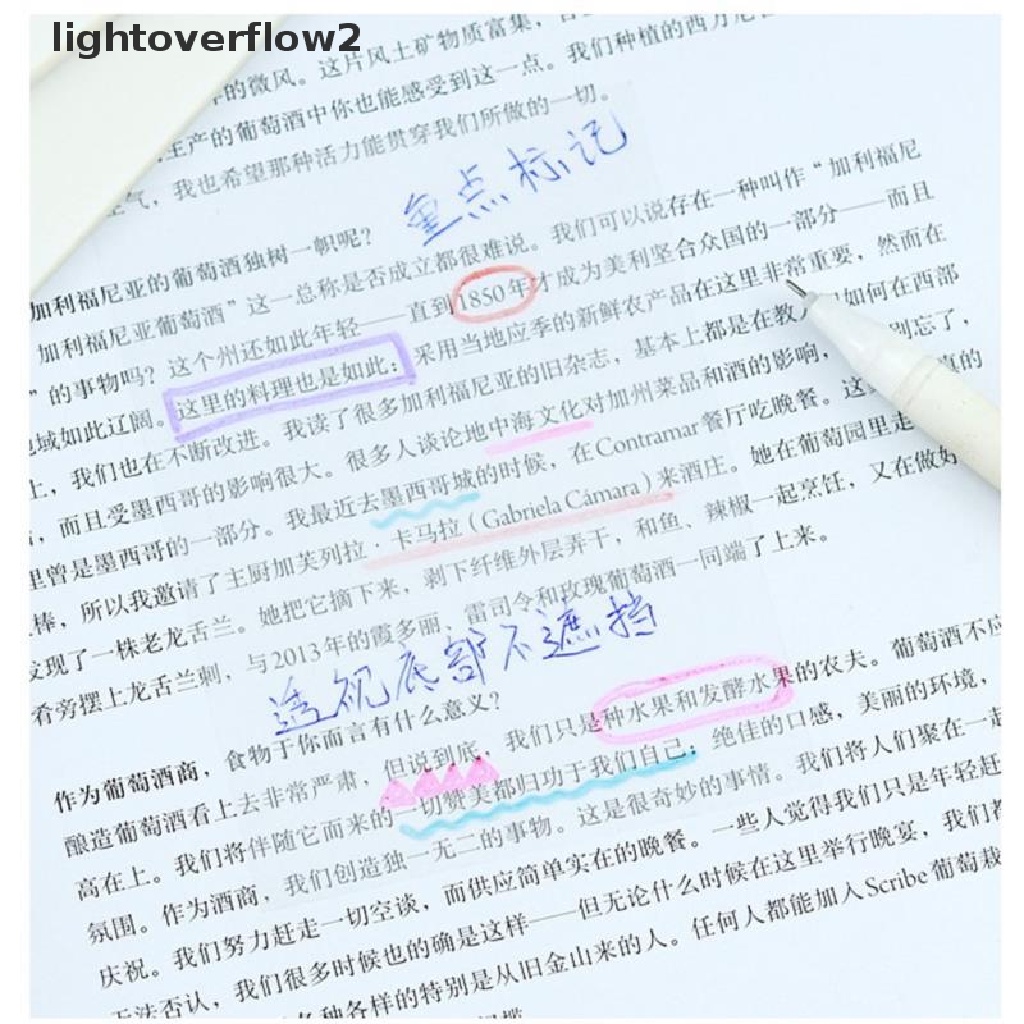 lightoverflow2
的微风。这片风土矿物质富集，
生产的葡萄酒中你也能感受到这一点。我们种植的西方
空气，我也希望那种活力能贯穿我们所做的一切。
重点标记
加利福尼亚的葡萄酒独树一帜呢？
加利福尼亚葡萄酒”这一总称是否成立都很难说。我们可以说存在一种叫作“加利福尼
”的事物吗？这个州还如此年轻——直到1850年才成为美利坚合众国的一部分——而且
域如此辽阔。这里的料理也是如此：采用当地应季的新鲜农产品在这里非常重要，然而在
上，我们也在不断改进。我读了很多加利福尼亚的旧杂志，基本上都是在教 如何在西部
，而且受墨西哥的影响很大。很多人谈论地中海文化对加州菜品和酒的影响， 别忘了，
里曾是墨西哥的一部分。我最近去墨西哥城的时候，在Contramar餐厅吃晚餐。这 真的
棒，所以我邀请了主厨加芙列拉·卡马拉（Gabriela Cámara）来酒庄。她在葡萄园里走
发现了一株老龙舌兰。她把它摘下来，剥下纤维外层弄干，和鱼、辣椒一起烹饪，又在做好
肴旁摆上龙舌兰刺，与2013年的霞多丽、雷司令和玫瑰葡萄酒一同端了上来。
透视底部不遮挡
食物于你而言有什么意义？
作为葡萄酒商，我们只是种水果和发酵水果的农夫。葡萄酒不应
酿造葡萄酒看上去非常严肃，但说到底，一切赞美都归功于我们自己；绝佳的口感，美丽的环境，
高在上。我们将伴随它而来的 我们创造独一无二的事物。这是很奇妙的事情。我们将人们聚在一起
氛围。作为酒商，而供应简单实在的晚餐。一些人觉得我们只是年轻赶
庆祝。我们努力赶走一切空谈，——但无论什么时候在这里举行晚宴，我们都
无法否认，我们很多时候也的确是这样 任何人都能加入Scribe葡萄栽
各种各样的特别是从旧金山来的人。